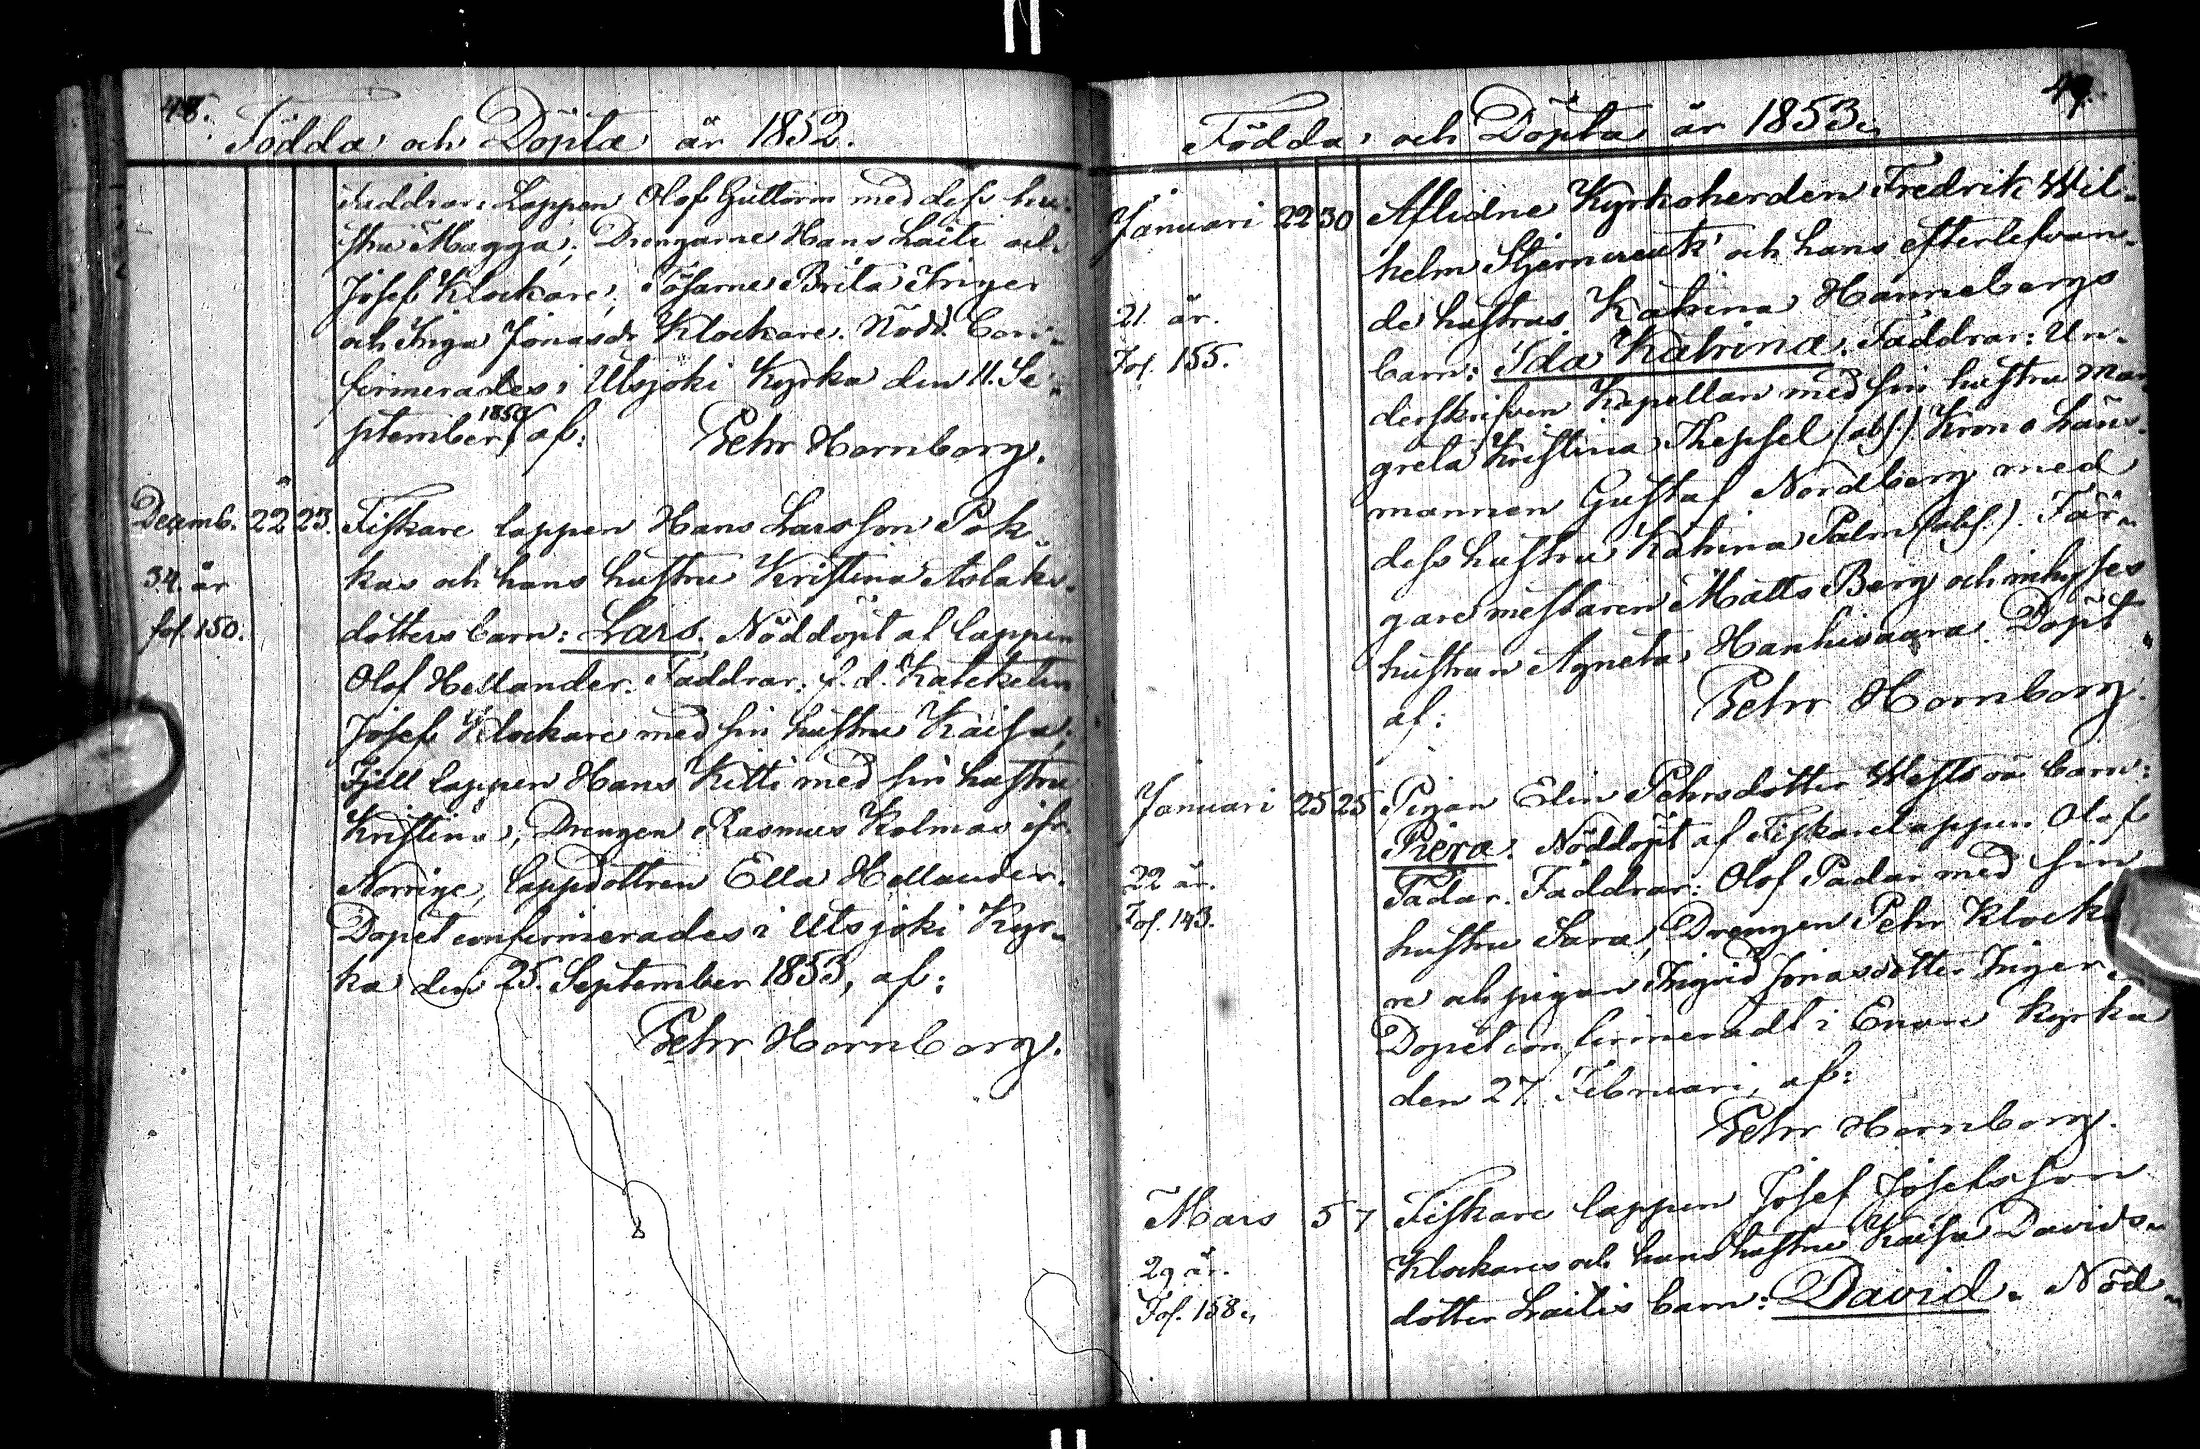 48.
Födda och Döpta år 1852.
Faddrar: Lappen Olof Guttorm med dess hu-
stru Magga; Drengarne Hans Laiti och
Josef Klockare; Pigarne Brita Inger
och Inga Jonasdr Klockare. Nödd. Con-
firmerades i Utsjoki Kyrka den 11. Se-
ptember 1853 af:
Pehr Hornborg.
Decemb. 22 23. Fiskare lappen Hans Larsson Pok-
34. år kas och hans hustru Kristina Aslaks-
fol. 150. dotters barn: Lars. Nöddöpt af lappen
Olof Hellander. Faddrar: f.d. Kateketen
Josef Klockare med sin hustru Kaisa;
Fjell lappen Hans Kitti med sin hustru
Kristina; Drengen Rasmus Kolmas ifr.
Norrige, lappdottren Ella Hellander.
Dopet confirmerades i Utsjoki Kyr-
ka den 25. September 1853, af:
Pehr Hornborg.
49.
Födda och Döpta år 1853.
Januari 22 30 Aflidne Kyrkoherden Fredrik Wil-
helm Stjerncreutz och hans efterlefvan-
21. år. de hustrus Katrina Hannebergs
Fol. 155. barn: Ida Katrina. Faddrar: Un-
derskrifven Kapellan med sin hustru Mar-
greta Kristina Thepsel (abs.) Krono Läns-
mannen Gustaf Nordberg med
dess hustru Katrina Palm (abs.). Fär-
garemestaren Matts Berg och inhyses
hustrun Agneta Hanhivaara. Döpt
af: Pehr Hornborg.
Januari 25 25 Pigan Elin Pehrsdotter Wests oä. barn:
Piera. Nöddöpt af Fiskarelappen Olof
22 år. Padar. Faddrar: Olof Padar med sin
Fol. 143. hustru Sara, Drengen Pehr Klocka-
re och pigan Ingrid Jonasdotter Inger.
Dopet confirmeradt i Enare Kyrka
den 27. Februari, af:
Pehr Hornborg.
Mars 5 7 Fiskare lappen Josef Josefsson
29 år. Klockares och hans hustru Kaisa Davids-
Fol. 158. dotter Laitis barn: David. Nöd-